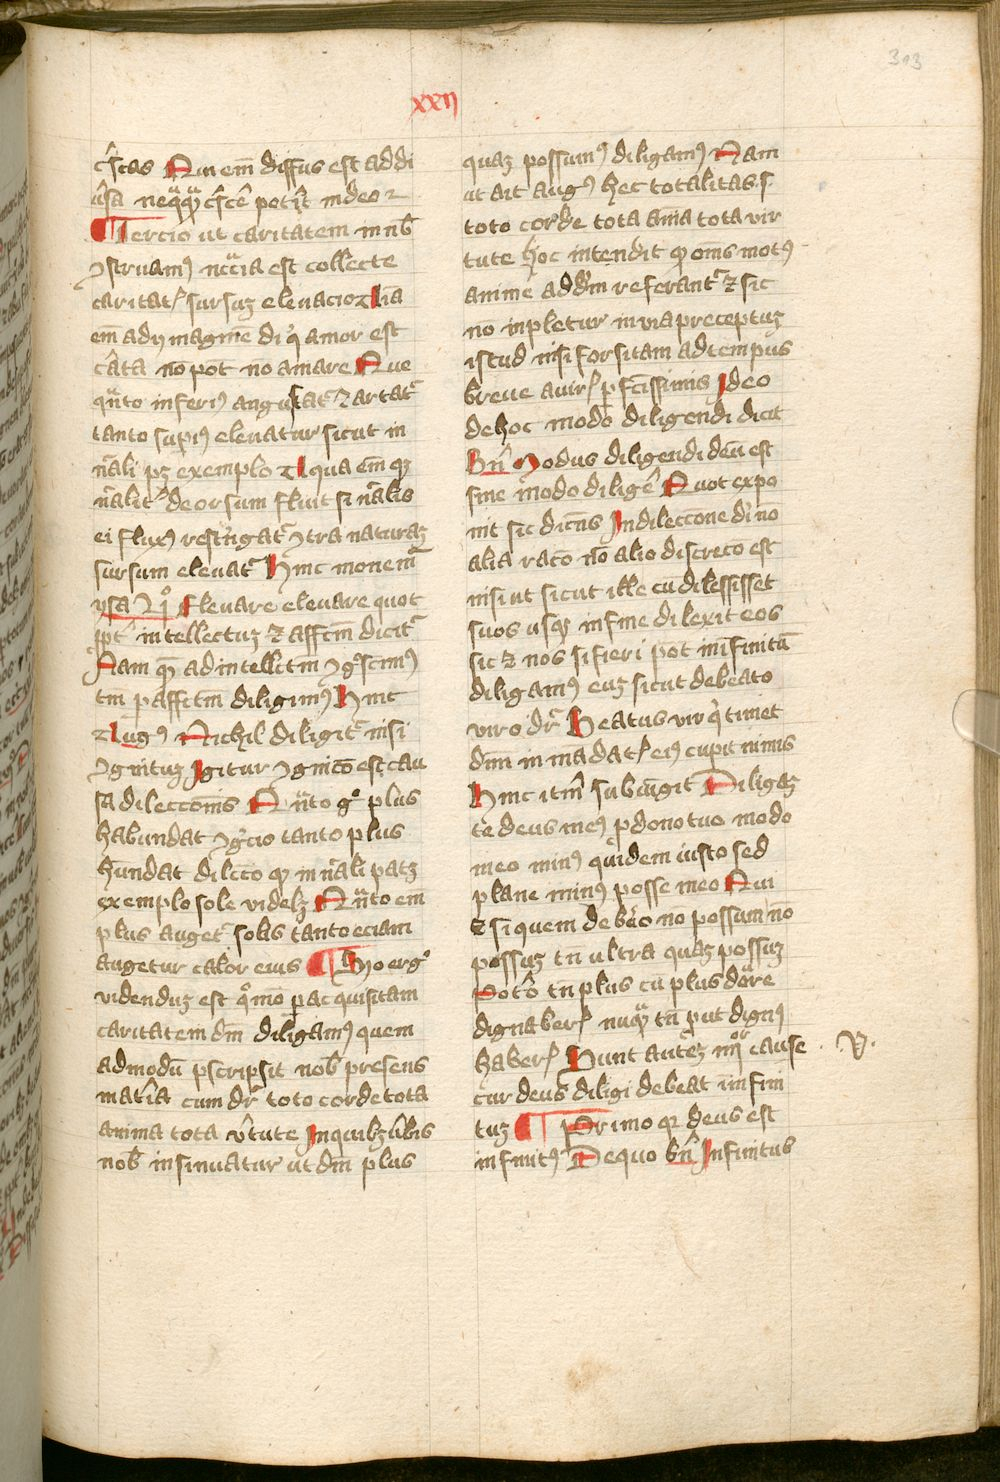 313
xxij
c̄scas Qui em̄ diffus est ad di
ūsa neq̈q̈ꝫ c̄scē pot̄it in deo ⁊
¶ Tercio ut caritatem in nob̄
ꝯstruamꝰ nc̄cia est collecte
caritatꝭ sursuꝫ eleuacio Alia
em̄ ad ymagine di qͥ amor est
cāta nō pōt nō amare Que
q̄nto inferiꝰ angustatᷣ ⁊ artatᷣ
tanto supiꝰ eleuatur sicut in
n̄ali pꝫ exemplo Aqua em̄ qꝫ
n̄alitꝭ deorsum fluit si n̄alis
ei fluxꝰ restringatᷣ ꝯtra naturaꝫ
sursum eleuatᷣ Hinc monem̄
ysa li Eleuare eleuare quot
sp̄t intellectuꝫ ⁊ affc̄m dicitᷣ
Nam qm̄ ad intellc̄m ꝯgͦscimꝰ
tm̄ p affc̄m diligimꝰ Hinc
Augꝰ Nichil diligitᷣ nisi
ꝯgnituꝫ Igitur ꝯgnicō est cau
sa dileccōnis Q̄nto gͦ plus
habundat ꝯgͦcio tanto plus
hūndat dilecto qꝫ in n̄ali patꝫ
exemplo sole videlꝫ Q̄nto em̄
plus augetᷣ solis tanto eciam
augetur calor eius ¶ Hijo ergͦ
videnduꝫ est qͦmō p acquisitam
caritatem dm̄ diligamꝰ quem
admodū p̄scripsit nob̄ presens
mat̄ia cum dr̄ toto corde tota
anima tota v̄tute In quibꝫ ūbis
nob̄ insinuatur ut dm̄ plus
quaꝫ possumꝰ diligamꝰ Nam
ut ait augꝰ hec totalitas .s.
toto corde tota aīa tota vir
tute hoc intendit ꝙ om̄s motꝰ
anime ad dm̄ referantᷣ ⁊ sic
nō inpletur in via preceptuꝫ
istud nisi forsitam ad tempus
breue a virꝭ p̄fc̄issimis Ideo
de hoc modo diligendi dicit
Bn̄ Modus diligendi deū est
sine modo diligē Quot expo
nit sic dicēns In dileccone dī nō
alia racō nō alio discrecō est
nisi ut sicut ille cū dilessisset
suos usqꝫ in fine dilexit eos
sic ⁊ nos si fieri pōt in īfinitū
diligamꝰ euꝫ sicut de beato
viro dr̄ Beatus vir qͥ timet
dm̄ in mādatꝭ eiꝰ cupit nimis
Hinc itm̄ subiūgit Diligaꝫ
te deus meꝰ p dono tuo modo
meo minꝰ quidem iusto sed
plane minꝰ posse meo Qui
⁊ si quem debeo nō possum nō
possuꝫ tn̄ ultra quaꝫ possuꝫ
Potō tn̄ plus cū plus dare
dignaberꝭ nuq̈ꝫ tn̄ put dignꝰ
haberꝭ Sunt auteꝫ iiijor cause . v.
cur deus diligi debeat infini
tuꝫ ¶ Primo qꝛ deus est
infinitꝰ De quo bn̄ Infinitus